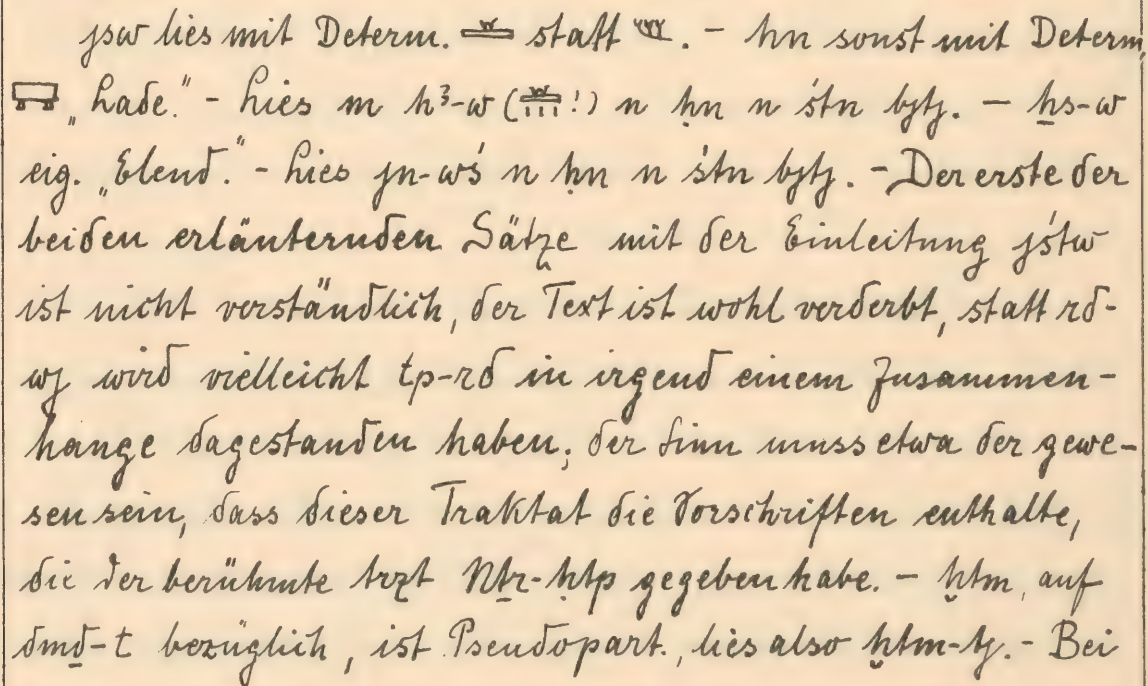 jsw lies mit Determ. statt . - hn sonst mit Determ.
„Lade." - Lies m ḥꜣ-w ( !) n ḥn n śtn bjtj. — ẖs-w
eig. „Elend." - Lies jn-wś n ḥn n śtn bjtj. - Der erste der
beiden erläuternden Sätze mit der Einleitung jśtw
ist nicht verständlich, der Text ist wohl verderbt, statt rd-
wj wird vielleicht tp-rd in irgend einem Zusammen-
hange dagestanden haben; der Sinn muss etwa der gewe-
sen sein, dass dieser Traktat die Vorschriften enthalte,
die der berühmte Arzt Nṯr-ḥtp gegeben habe. - ḫtm, auf
dmḏ-t bezüglich, ist Pseudopart., lies also ḫtm-tj. - Bei